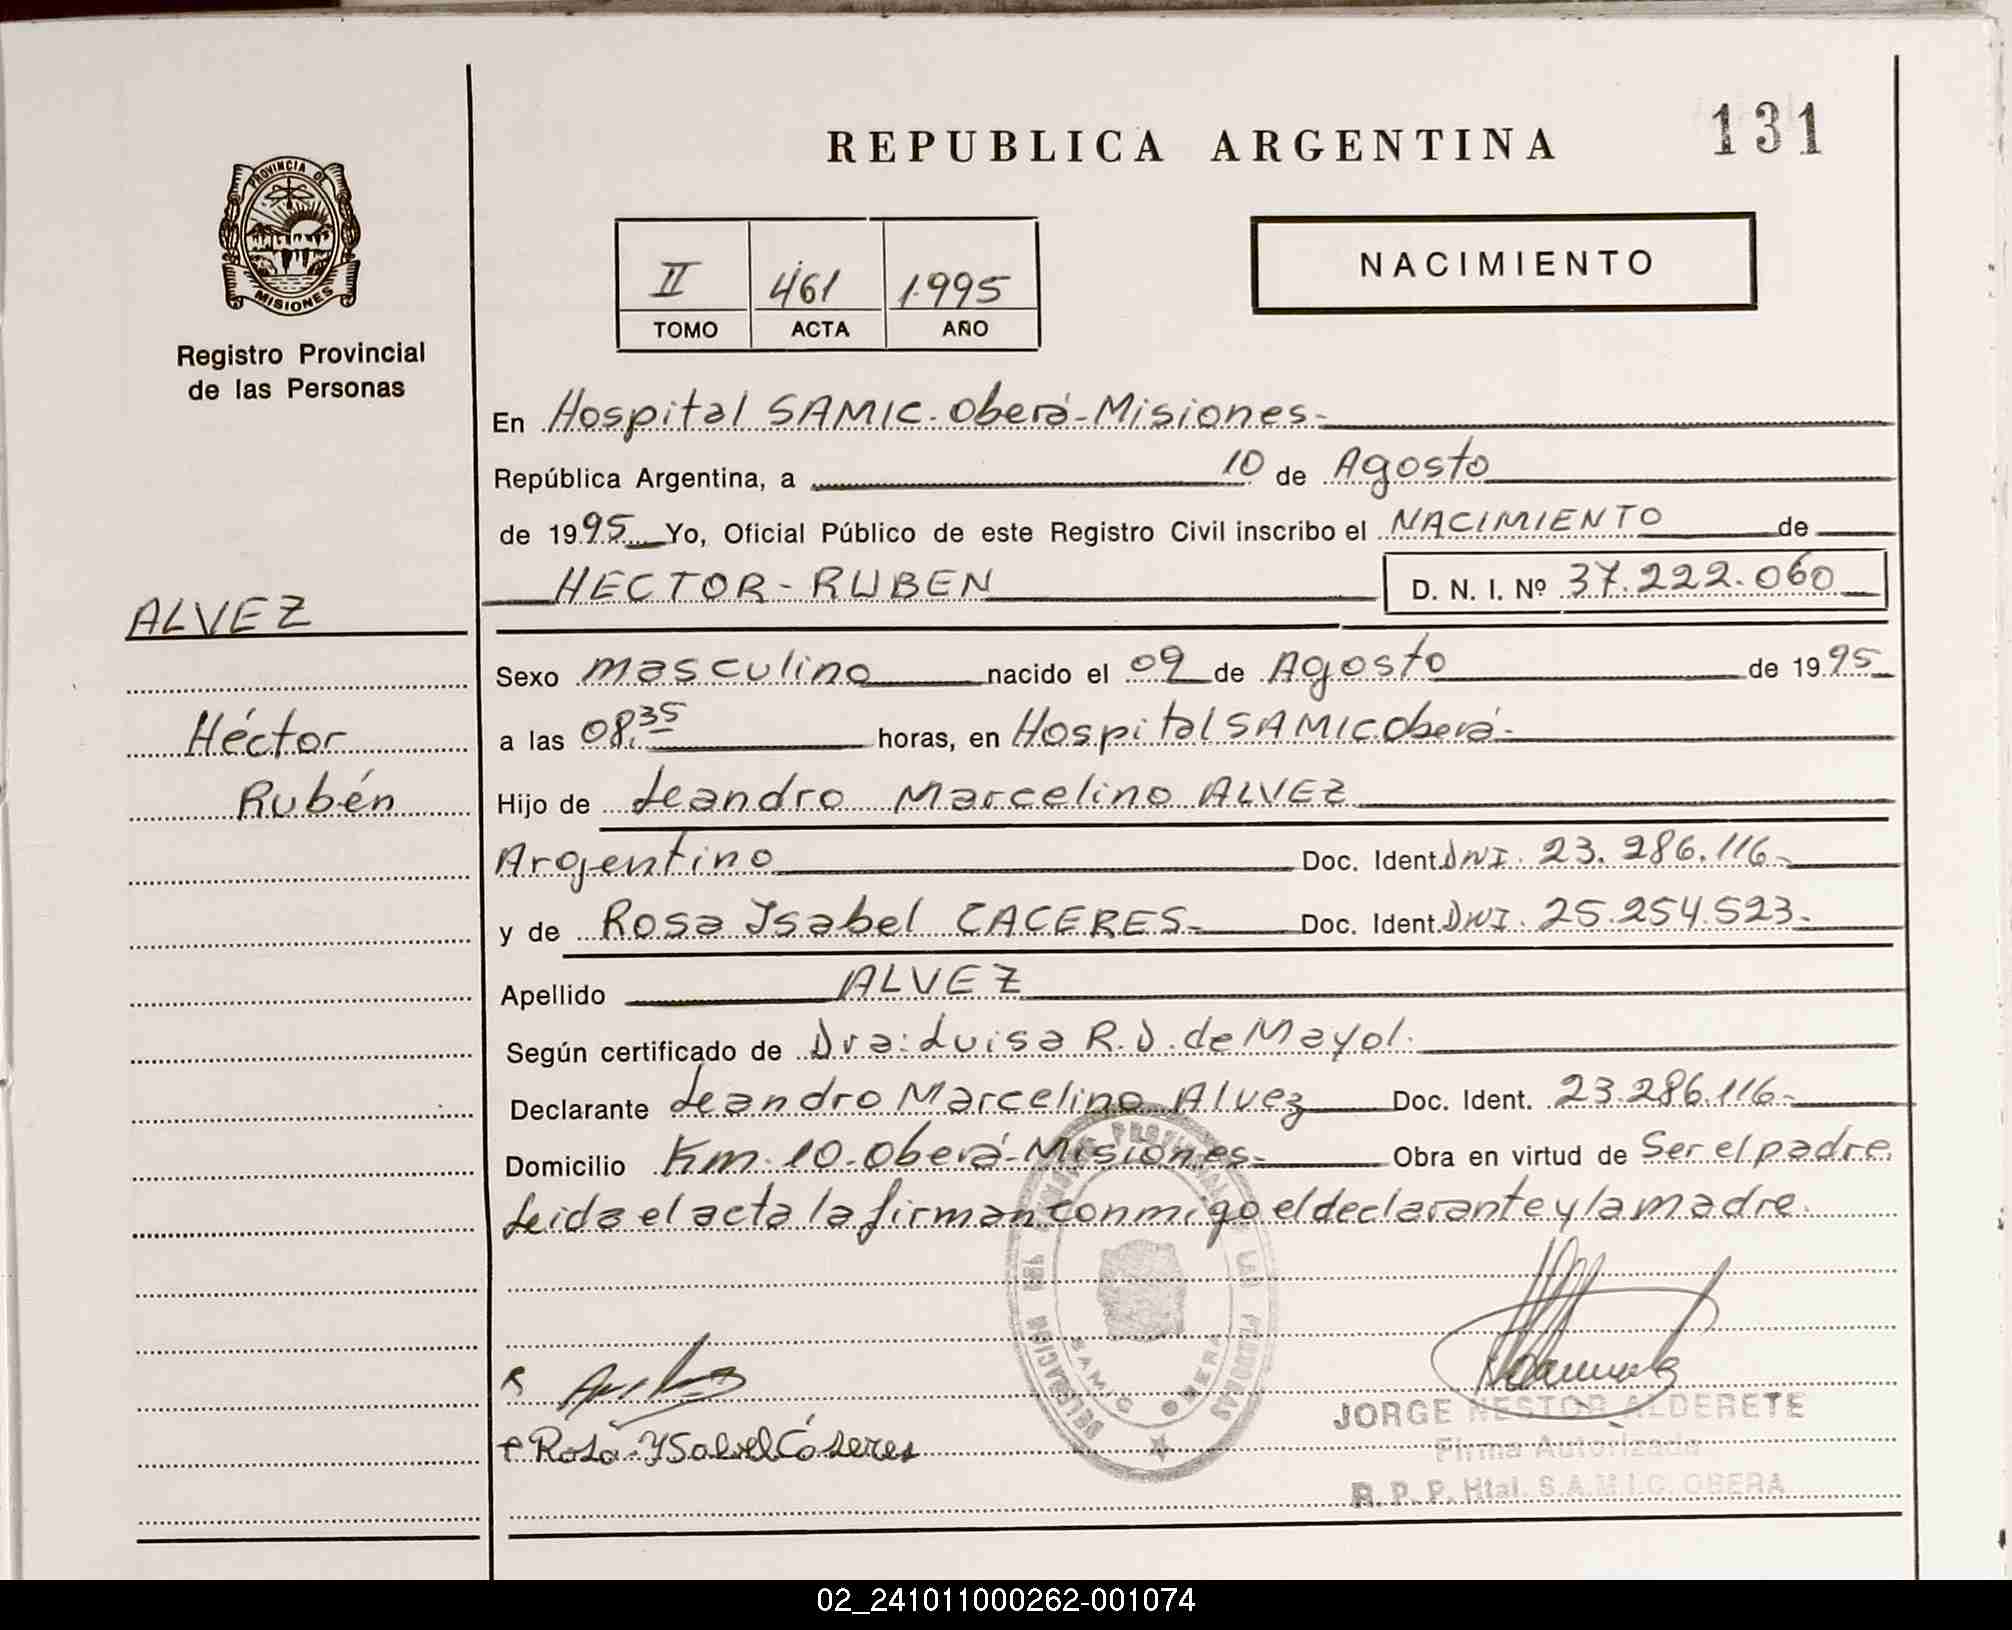 REPUBLICA ARGENTINA
131
PROVINCIA DE
MISIONES
Registro Provincial
de las Personas
II 461 1995
TOMO ACTA AÑO
NACIMIENTO
En Hospital SAMIC. Oberá-Misiones-
República Argentina, a 10 de Agosto
de 1995 Yo, Oficial Público de este Registro Civil inscribo el NACIMIENTO de
HECTOR-RUBEN D. N. I. Nº 37.222.060
ALVEZ
Héctor
Rubén
Sexo masculino nacido el 09 de Agosto de 1995
a las 08.35 horas, en Hospital SAMIC Oberá-
Hijo de Leandro Marcelino ALVEZ
Argentino Doc. Ident. DNI. 23.286.116-
y de Rosa Isabel CACERES- Doc. Ident. DNI. 25.254.523-
Apellido ALVEZ
Según certificado de Dra: Luisa R.D. de Mayol.
Declarante Leandro Marcelino Alvez Doc. Ident. 23.286.116-
Domicilio Km. 10-Oberá-Misiones- Obra en virtud de Ser el padre.
Leida el acta la firman conmigo el declarante y la madre.
DELEGACION DEL REGISTRO PROVINCIAL DE LAS PERSONAS
SAMIC OBERA
Rosa Ysabel Cáseres
JORGE NESTOR ALDERETE
Firma Autorizada
R. P. P. Htal. S.A.M.I.C. OBERA
02_241011000262-001074